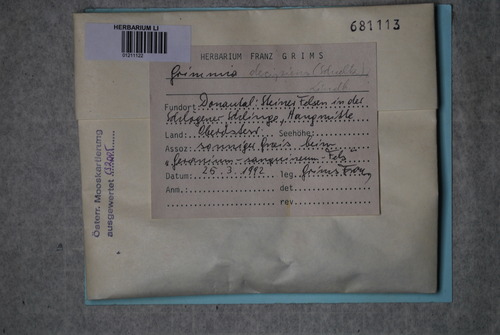 HERBARIUM LI
01211122
681113
HERBARIUM FRANZ GRIMS
Grimmia decipiens (Schultz)
Lindb.
Fundort: Donautal: Kleiner Felsen in der
Schlögener Schlinge, Hangmitte
Land: Oberösterr. Seehöhe:
Assoz: sonniger Gneis beim
"Geranium-sanguineum-Fels"
Datum: 25.3.1992 leg. Grims Franz
Anm.: det
rev.
Österr. Mooskartierung
ausgewertet